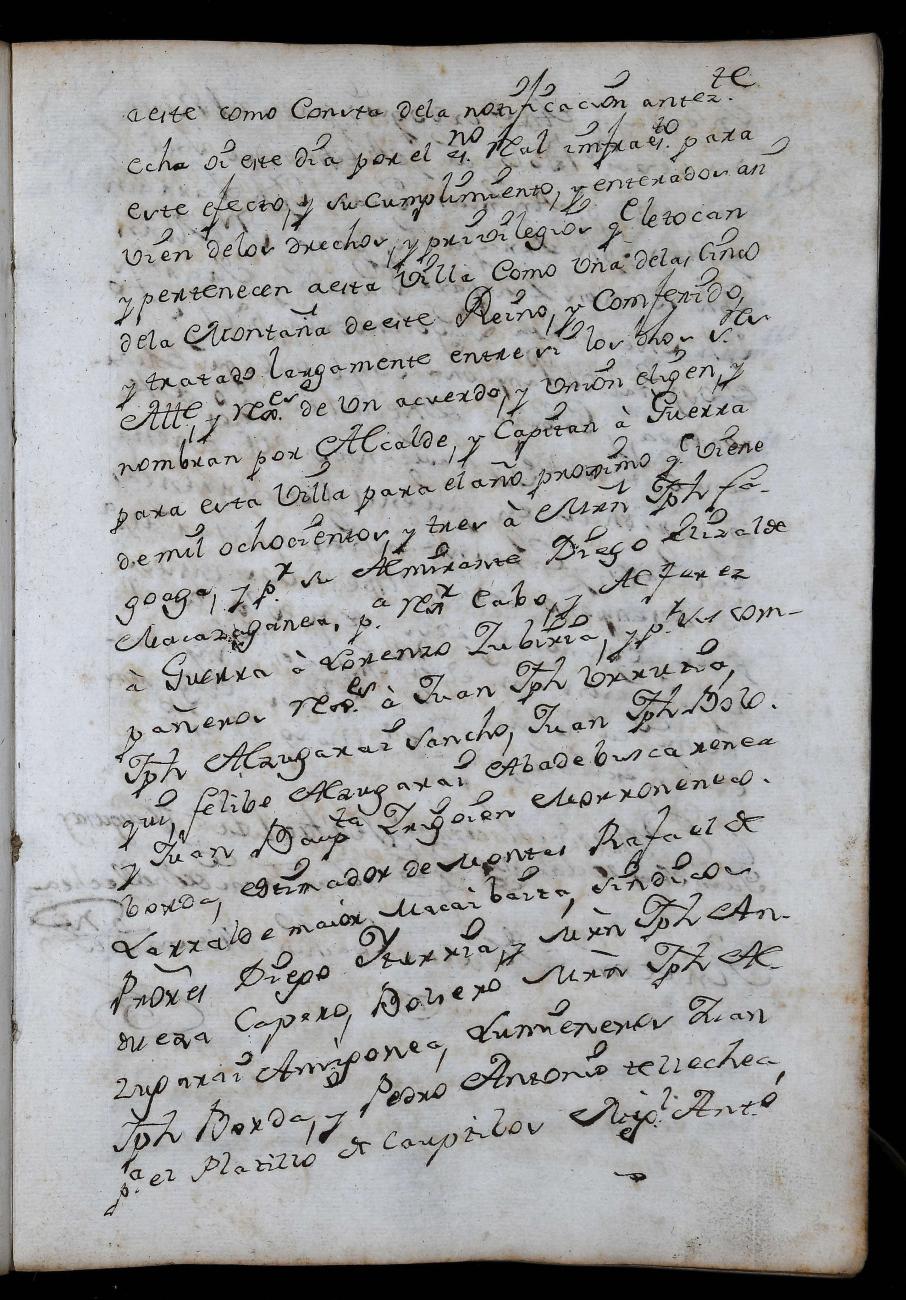 a este como Consta dela notificación antez.te
echa oi este dia por el es.no Real imfraes.to para
este efecto, y su Cumplimiento, y enterados an
vien delos drechos, y privilegios q.e le tocan
y pertenecen a esta Villa Como Una delas Cinco
dela Montaña de este Reino, y Comferido,
y tratado largamente entre si los dhos S.res
Alle, y rexres de un acuerdo, y Union eligen, y
nombran por Alcalde, y Capitan à Guerra
para esta Villa para el año proximo q.e viene
de mil ochocientos, y tres à Mrñ Jph Fa-
goaga, y p.r su Almirante Diego Elizalde
Macazaganea, p.a rexr Cabo, y Alferez
à Guerra à Lorenzo Zubiria, y p.r sus com-
pañeros rexres à Juan Jph Urrutia,
Jph Alzugarai Sancho, Juan Jph
qui, felibe Alzugarai Abadebuscarenea
y Juan Baup.ta Irigoien Morronenea.
borda, estimador de Montes Rafael de
Larralde maior Macaibaita, Sindicos
Prôres Diego Yturria, y Mrñ Jph An-
dueza Capero, Bolsero Mrñ Jph Al-
zugarai Amigonea, Lumineros Juan
Jph Borda, y Pedro Antonio tellechea,
p.a el Platillo de Cauptibos Mig.l Ant.o